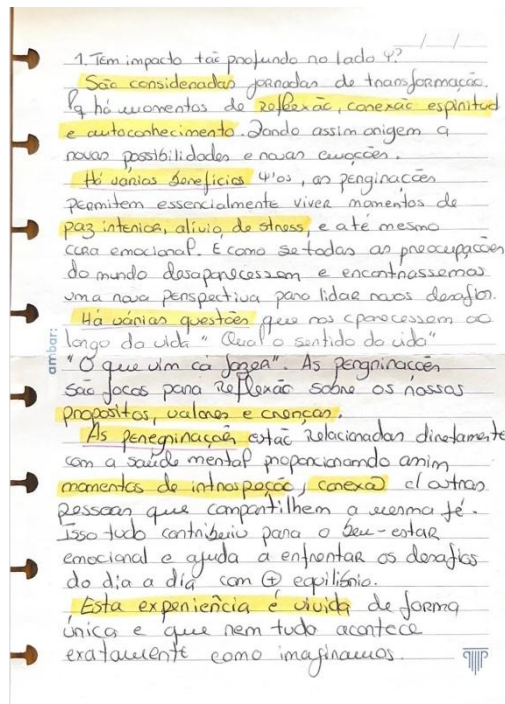 __/__/__
1. Têm impacto tão profundo no lado Ψ?
São consideradas jornadas de transformação.
Pq há momentos de reflexão, conexão espiritual
e autoconhecimento. Dando assim origem a
novas possibilidades e novas emoções.
Há vários benefícios Ψ'os, as penginações
permitem essencialmente viver momentos de
paz interior, alívio de stress, e até mesmo
cura emocional. É como se todas as preocupações
do mundo desaparecessem e encontrassemos
uma nova perspectiva para lidar novos desafios.
Há várias questões que nos aparecessem ao
longo da vida "Qual o sentido da vida"
"O que vim cá fazer". As pengninações
são focos para reflexão sobre os nossos
propositos, valores e crenças.
As penegninações estão relacionadas diretamente
com a saúde mental proporcionando assim
momentos de introspeção, conexão c/ outras
pessoas que compartilhem a mesma fé.
Isso tudo contribuiu para o bem-estar
emocional e ajuda a enfrentar os desafios
do dia a dia com ⊕ equilíbrio.
Esta experiência é vivida de forma
única e que nem tudo acontece
exatamente como imaginamos.
ambar: